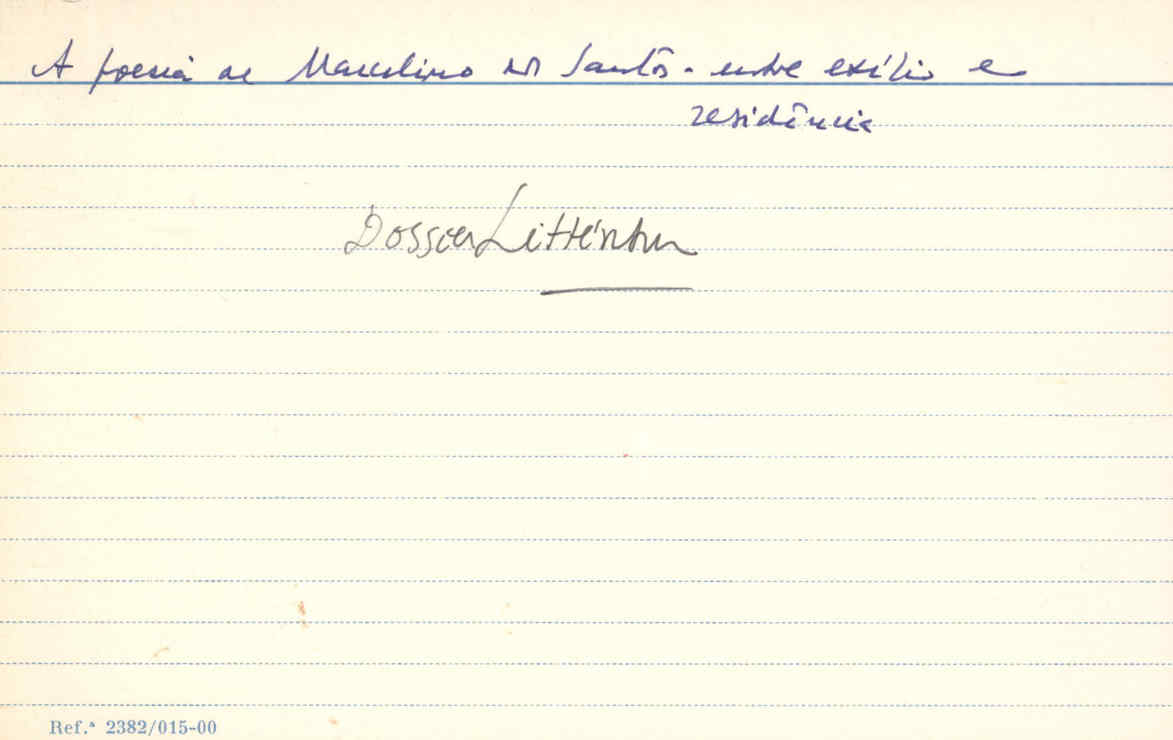 A poesia de Marcelino dos Santos - entre exílio e
residência
Dossier Littératur
Ref.ª 2382/015-00